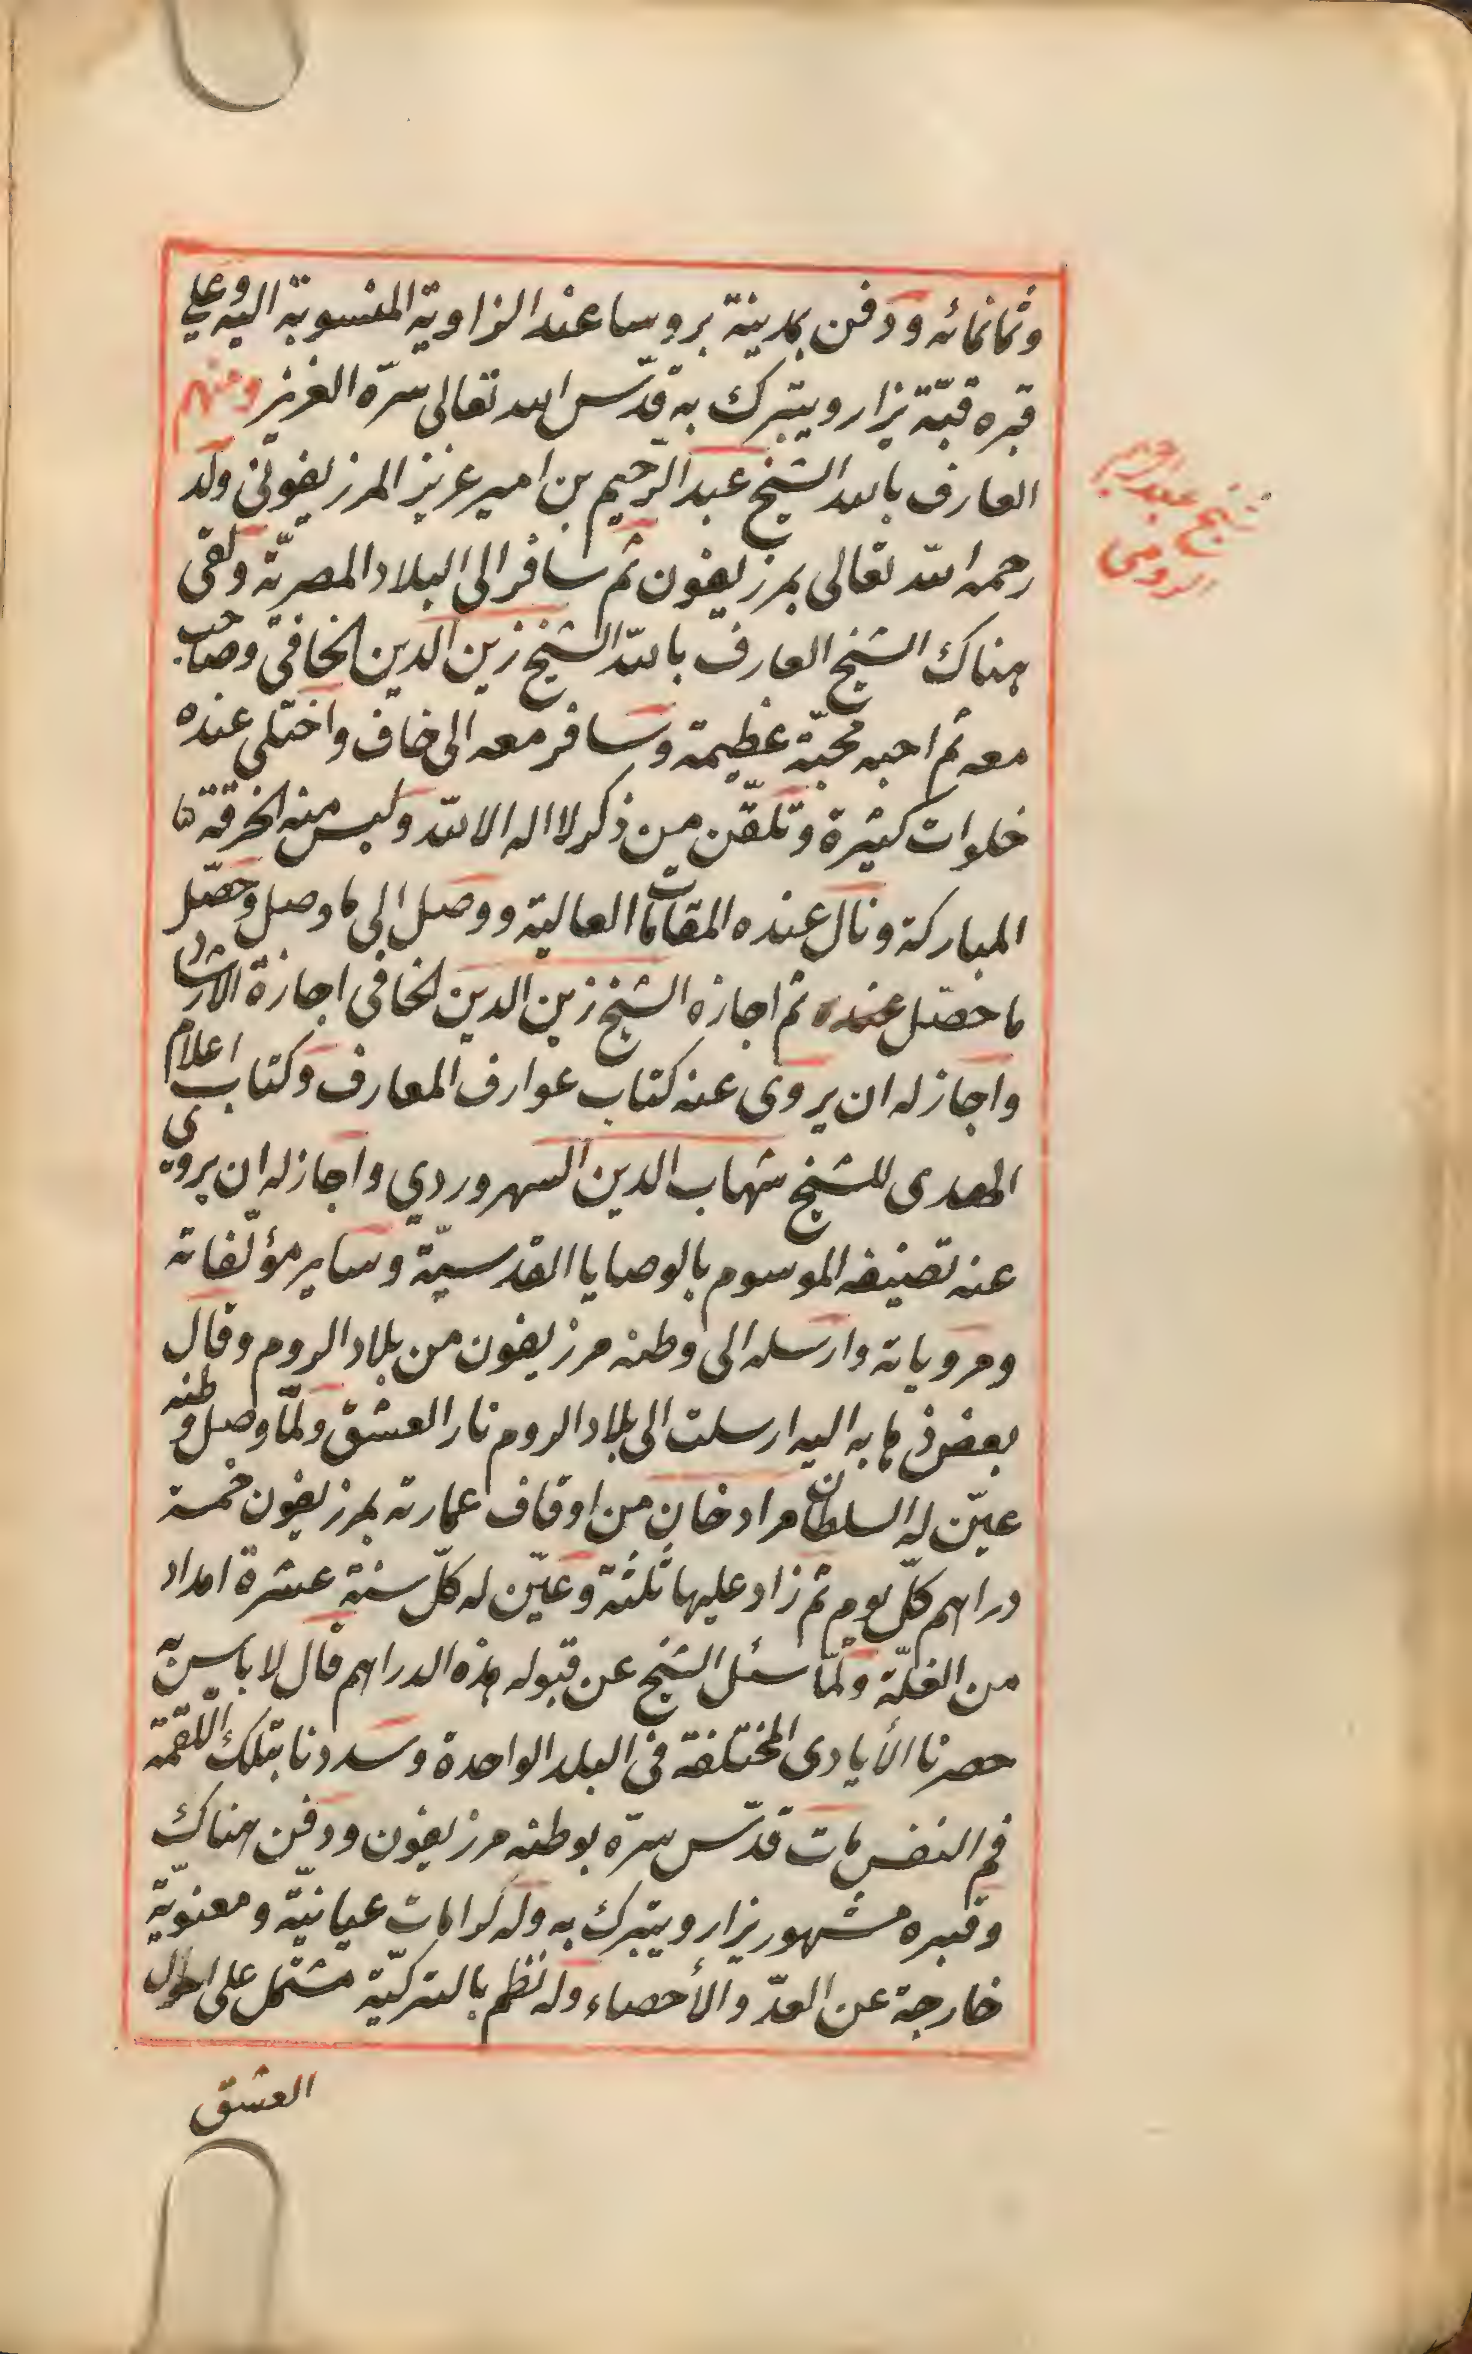 وثمانمائه ودفن بمدينة بروسا عند الزاوية المنسوبة اليه وعلى
قبره قبّة يزار ويتبرك به قدّس الله تعالى سرّه العزيز ومنهم
العارف بالله الشيخ عبد الرحيم بن امير عزيز المرزيفونى ولد
شيخ عبد الرحيم
الرومى
رحمه الله تعالى بمرزيفون ثم سافر الى البلاد المصريّة ولقى
هناك الشيخ العارف بالله الشيخ زين الدين الخافي وصاحب
معه ثم احبه محبّة عظيمة وسافر معه الى خاف واختلى عنده
خلوات كثيرة وتلقّن من ذكر لا اله الا الله ولبس منه الخرقة
المباركة ونال عنده المقامات العالية ووصل الى ما وصل وحصّل
ما حصّل عنده ثم اجازه الشيخ زين الدين الخافى اجازة الارشاد
واجاز له ان يروى عنه كتاب عوارف المعارف وكتاب اعلام
الهدى للشيخ شهاب الدين السهروردي واجاز له ان يروى
عنه تصنيفه الموسوم بالوصايا القدسيّة وساير مؤلّفاته
ومروياته وارسله الى وطنه مرزيفون من بلاد الروم وقال
بعض ذهابه اليه ارسلت الى بلاد الروم نار العشق ولمّا وصل وطنه
عيّن له السلطان مراد خان من اوقاف عمارته بمرزيفون خمسة
دراهم كلّ يوم ثم زاد عليها ثلثة وعيّن له كلّ سنة عشرة امداد
من الغلّة ولمّا سئل الشيخ عن قبوله هذه الدراهم قال لا باس به
حصرنا الأيادى المختلفة فى البلد الواحدة وسددنا بتلك اللقمة
فم النفس مات قدّس سرّه بوطنه مرزيفون ودفن هناك
وقبره مشهور يزار ويتبرك به وله كرامات عيانيّة ومعنويّة
خارجة عن العدّ والأحصاء وله نظم بالتركيّة مشتمل على احوال
العشق